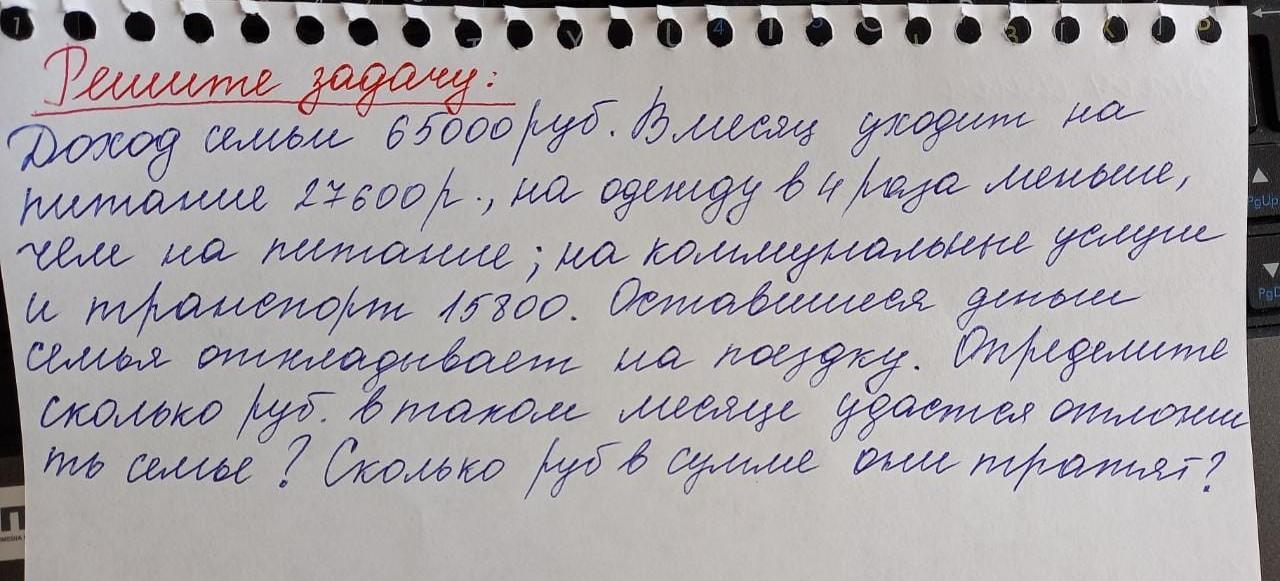 Решите задачу:
Доход семьи 65000 руб. В месяц уходит на
питание 27600 р., на одежду в 4 раза меньше,
чем на питание; на коммунальные услуги
и транспорт 15800. Оставшиеся деньги
семья откладывает на поездку. Определите
сколько руб. в таком месяце удастся отложи
ть семье? Сколько руб в сумме они тратят?
PgUp